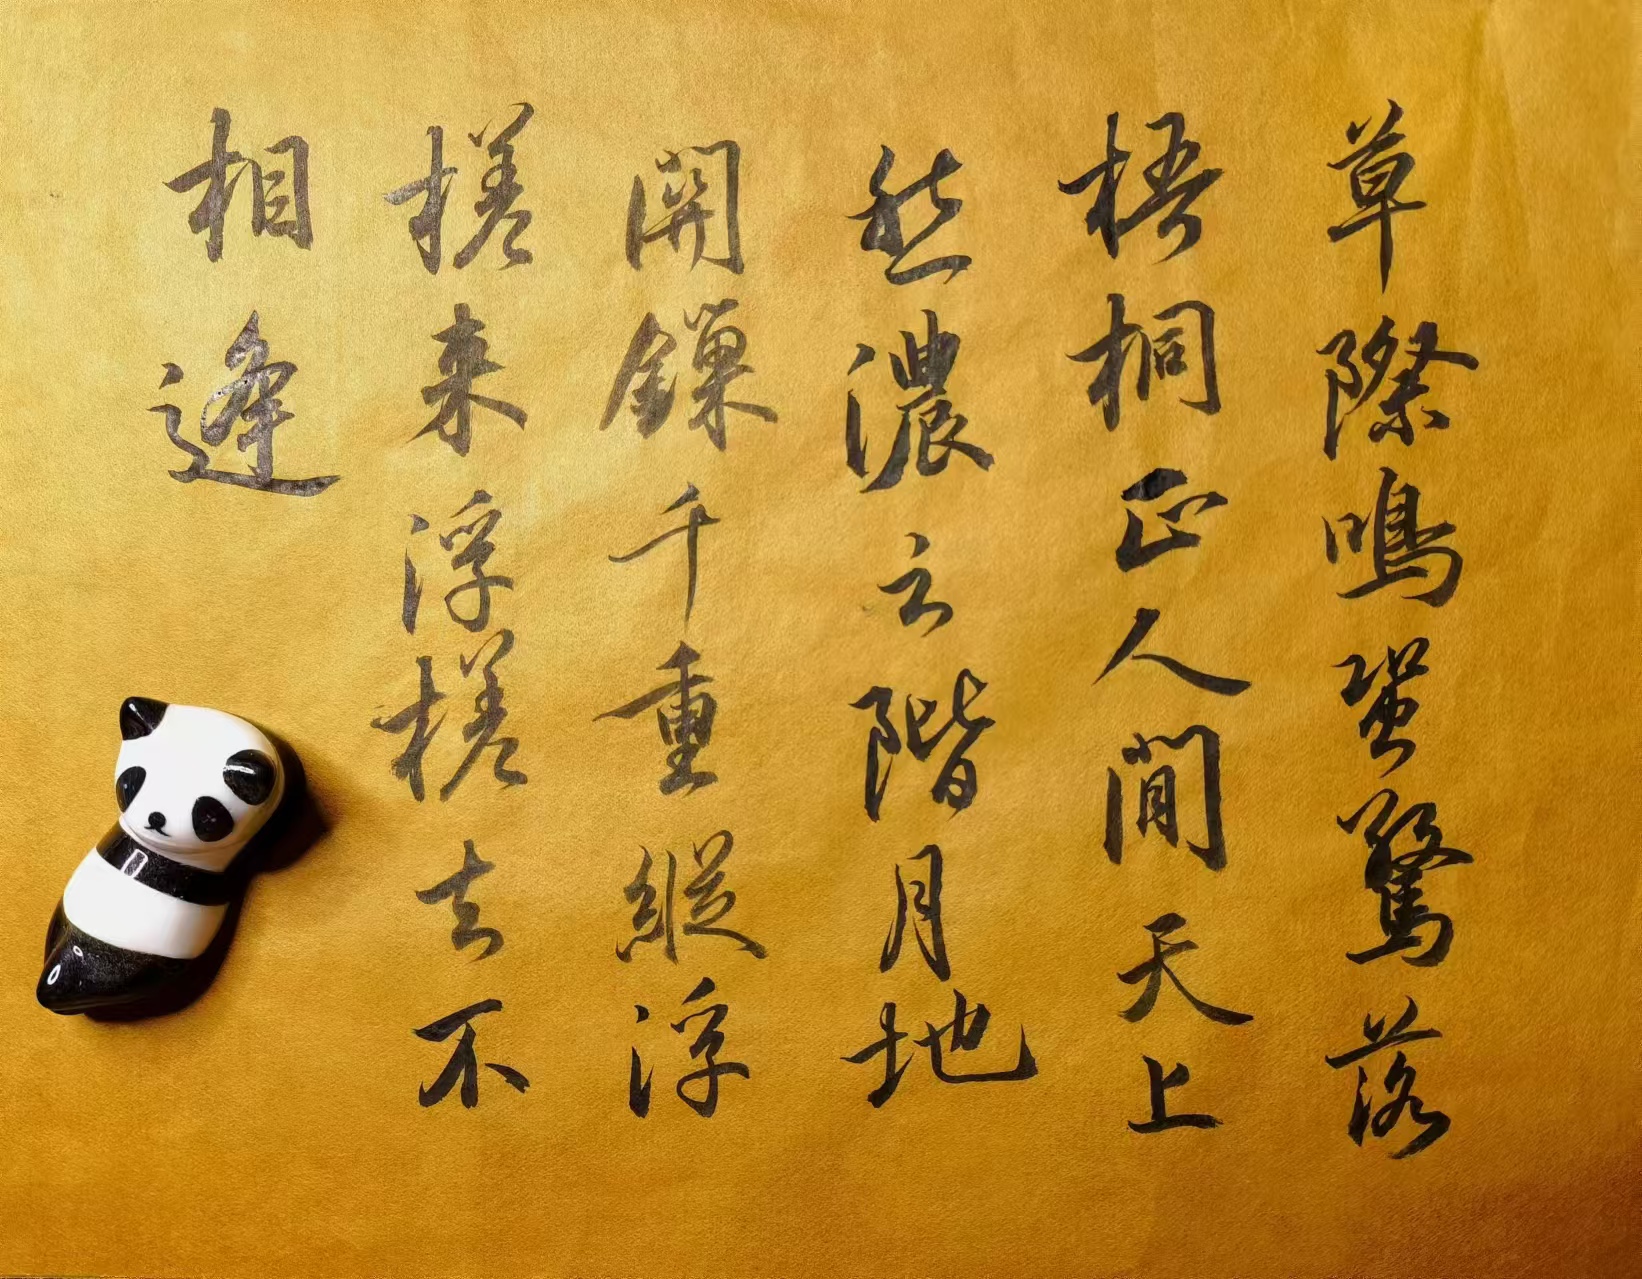 草際鳴蛩驚落
梧桐正人閒天上
愁濃云階月地
開鏁千重縱浮
槎来浮槎去不
相逢